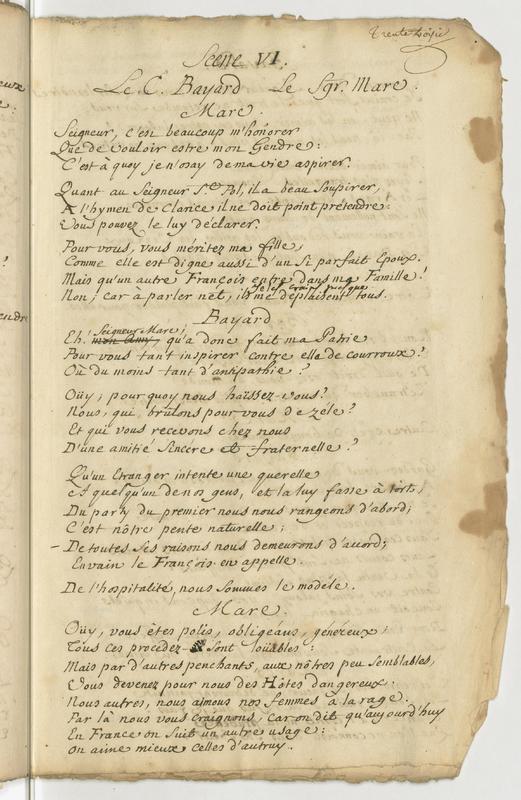 trente troisie
Scene VI.
Le C. Bayard Le Sgr. Marc.
Marc.
Seigneur, c'est beaucoup m'honorer
Que de vouloir estre mon Gendre:
C'est à quoy je n'osay de ma vie aspirer.
Quant au Seigneur St. Pol, il a beau soupirer,
A l'hymen de Clarice il ne doit point prétendre:
Vous pouvez le luy déclarer.
Pour vous, vous méritez ma fille,
Comme elle est digne aussi d'un si parfait Epoux.
Mais qu'un autre François entre dans ma Famille!
je les crains presque
Non; car a parler net, ils me déplaisent tous.
Bayard
Seigneur Marc;
Eh! mon Amy, qu'a donc fait ma Patrie
Pour vous tant inspirer contre elle de courroux?
Où du moins tant d'antipathie?
Oüy, pourquoy nous haïssez-vous?
Nous, qui brûlons pour vous de zéle?
Et qui vous recevons chez nous
D'une amitié sincere et fraternelle?
Qu'un Etranger intente une querelle
A quelqu'un de nos gens, et la luy fasse à tort,
Du party du premier nous nous rangeons d'abord;
C'est nôtre pente naturelle;
- De toutes ses raisons nous demeurons d'accord;
Envain le François en appelle.
De l'hospitalité, nous sommes le modéle.
Marc.
Oüy, vous étes polis, obligéans, généreux;
Tous ces procédez sont loüables:
Mais par d'autres penchants, aux nôtres peu semblables,
Vous devenez pour nous des Hôtes dangereux.
Nous autres, nous aimons nos femmes à la rage.
Par là nous vous craignons, car on dit qu'aujourd'huy
En France on suit un autre usage:
On aime mieux celles d'autruy..